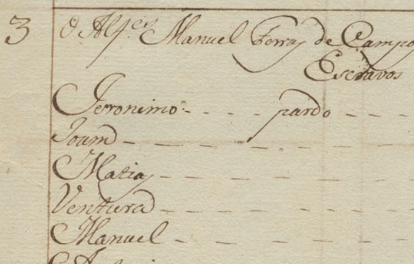 3 O Alf.es Manuel Ferraz de Campo
Escravos
Jeronimo - - - pardo - - -
Joam - - - - - - -
Matias - - - - - -
Ventura - - - - - -
Manuel - - - - - -